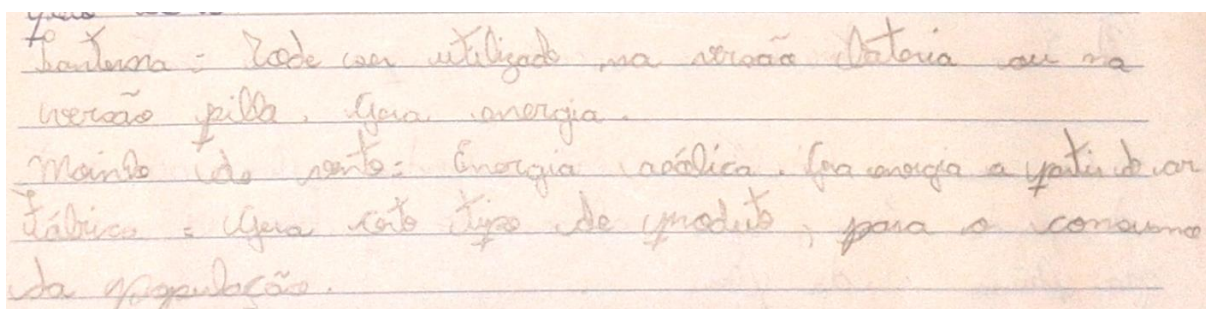 Lanterna = Pode ser utilizado na versão bateria ou na
versão pilha. Gera energia.
Moinho de vento = Energia aeólica. Gera energia a partir do ar
Fábrica = Gera certo tipo de produto, para o consumo
da população.